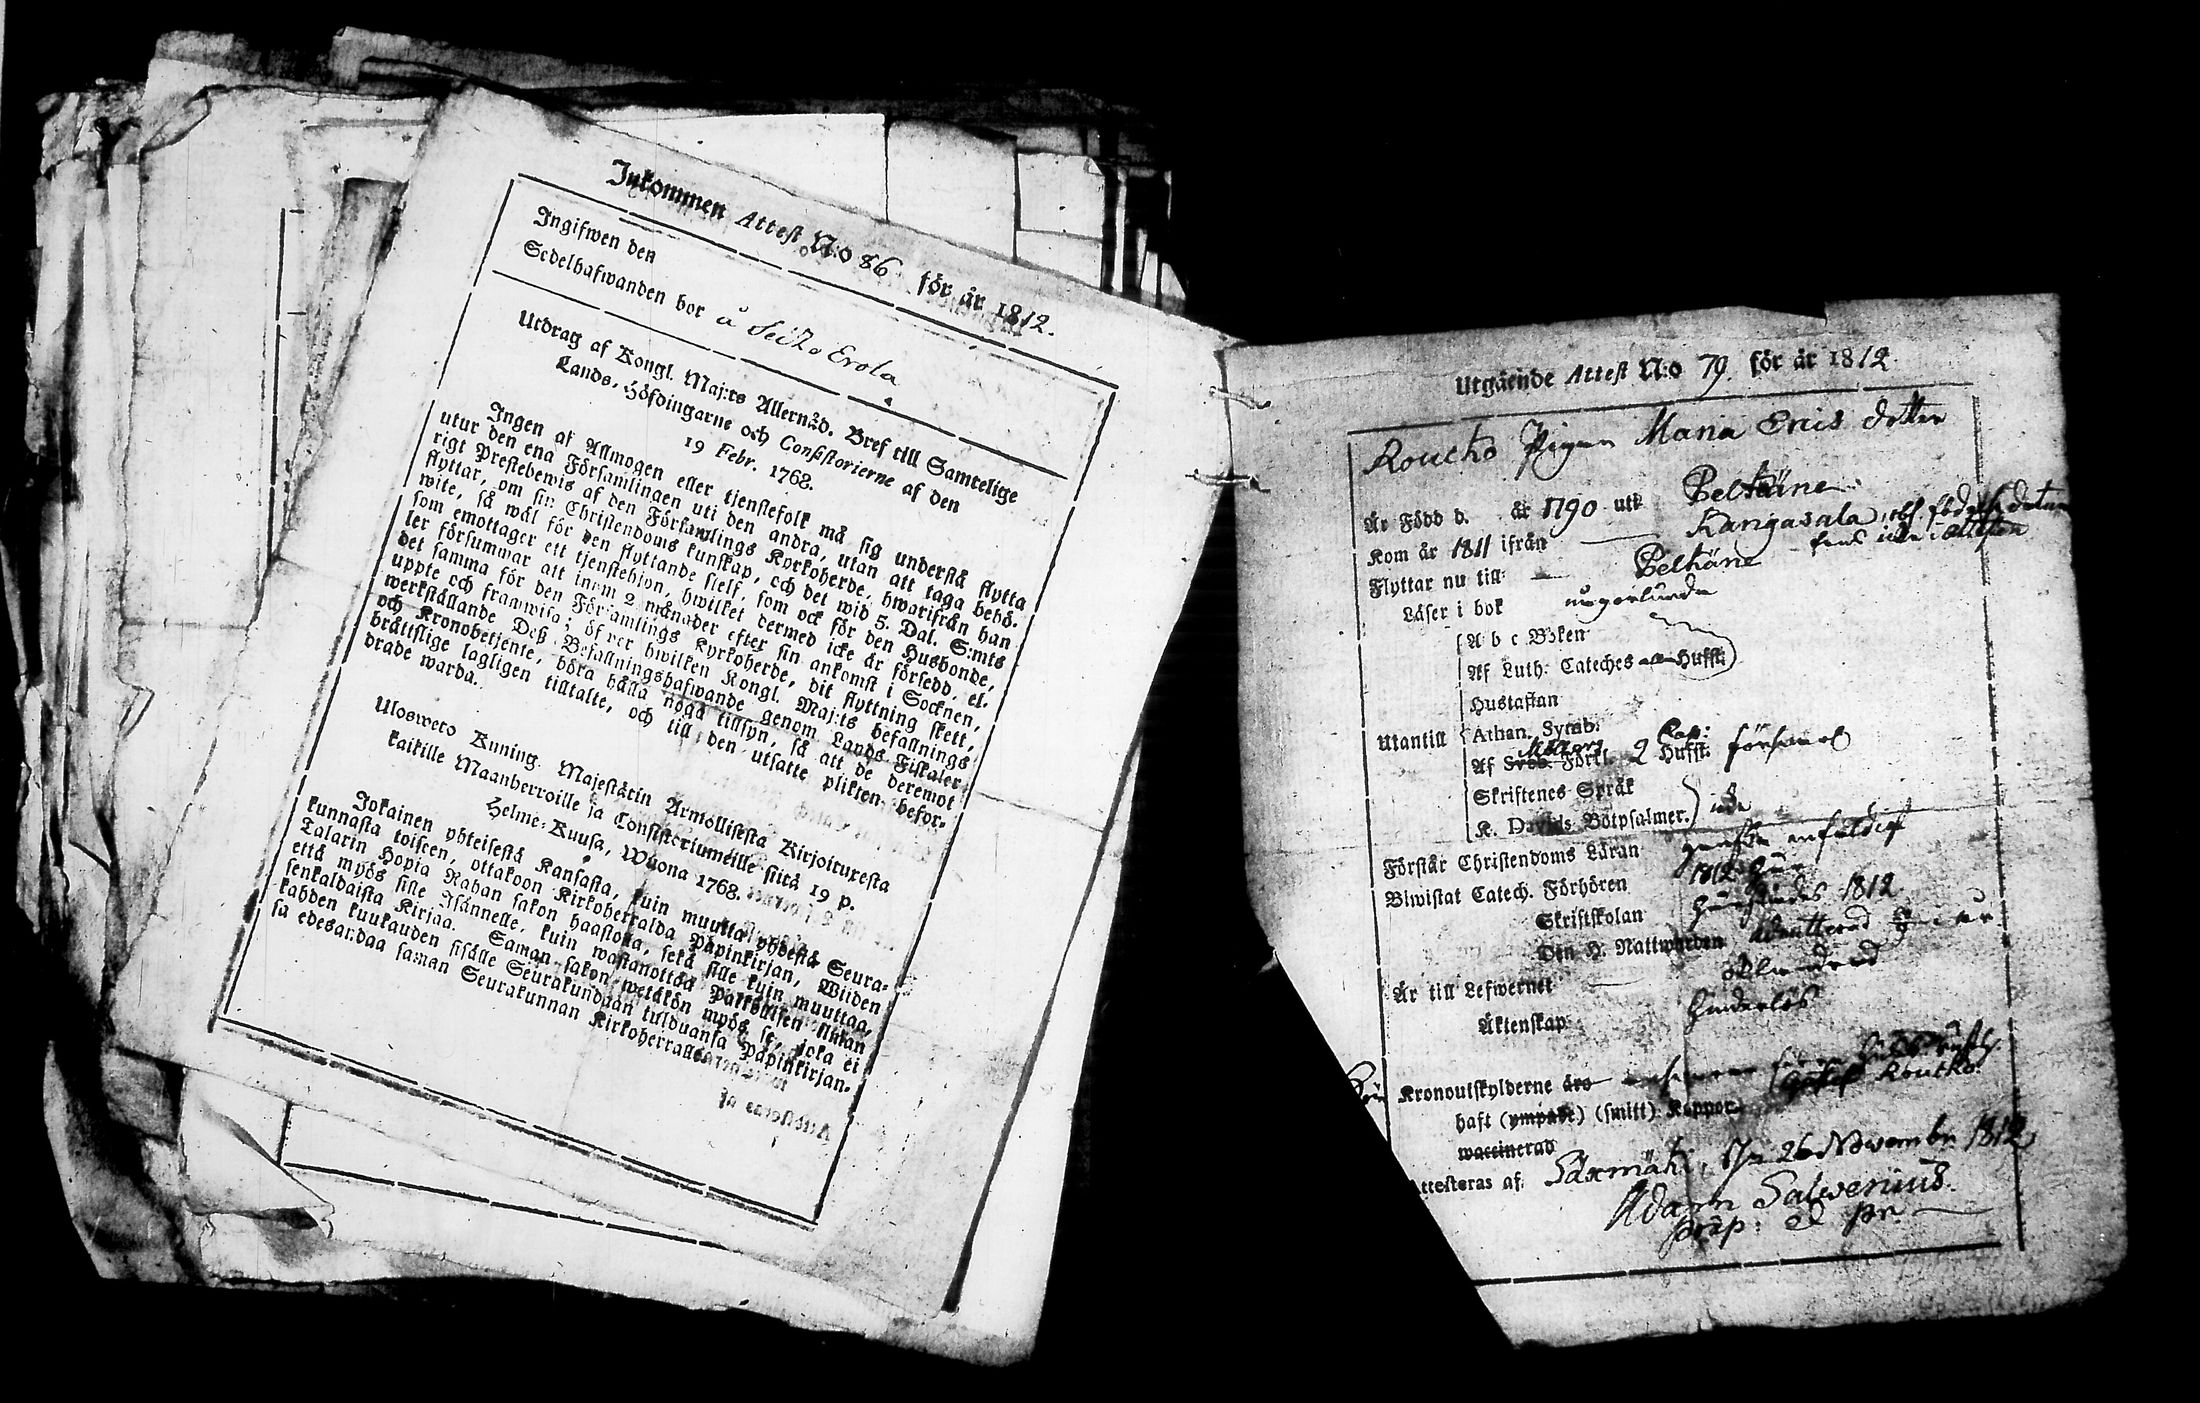 Inkommen Attest N:o 86 för år 1812.
Ingifwen den
Sedelhafwanden bor å Seitz Erola
Utdrag af Kongl. Maj:ts Allernåd. Bref till Samtelige
Lands-Höfdingarne och Consistorierne af den
19 Febr. 1768.
Ingen af Allmogen eller tjenstefolk må sig understå flytta
utur den ena Församlingen uti den andra, utan att taga behö-
rigt Prestebewis af den Församlings Kyrkoherde, hwarifrån han
flyttar, om sin Christendoms kunskap, och det wid 5. Dal. S:mts
wite, så wäl för den flyttande sielf, som ock för den Husbonde,
som emottager ett tjenstehjon, hwilket dermed icke är försedd, el-
ler försummar att inom 2 månader efter sin ankomst i Socknen,
det samma för den Församlings Kyrkoherde, dit flyttning skett,
uppte och framwisa; öfwer hwilken Kongl. Maj:ts befallnings
werkställande Deß Befallningshafwande genom Lands-Fiskaler
och Kronobetjente, böra hålla noga tillsyn, så att de deremot
bråttslige lagligen tilltalte, och till den utsatte plikten befor-
drade warda.
Uloswero Kuning. Majestätin Armollisesta Kirjoituxesta
kaikille Maanherroille ja Consistoriumeille siitä 19 p.
Helme-Kuusa, Wuona 1768.
Jokainen yhteisestä Kansasta, kuin muutta yhdestä Seura-
kunnasta toiseen, ottakoon Kirkoherralda Papinkirjan, Wiiden
Talarin Hopia Rahan sakon haastolla, sekä sille kuin muuttaa,
että myös sille Isännelle, kuin wastanottaa Palkollisen ilman
senkaldaista Kirjaa. Saman sakon wetäkön myös se, joka ei
kahden kuukauden sisälle Seurakundaan tulduansa Papinkirjan-
sa edesandaa saman Seurakunnan Kirkoherralle.
Utgående Attest N:o 79. för år 1812.
Koutko Pigan Maria Erics dotter
Är Född d. år 1790 uti Pelkäne
Kom år 1811 ifrån Kangasala, obs födelse datum
fans icke i attesten
Flyttar nu till Pelkäne
Läser i bok någorlunda
A b c Boken
Af Luth. Cateches Husst:
Hustaflan
Athan. Symb.
Utantill
Af Förkl. 2 Cap: försvarl
Skriftenes Språk
K. Davids Botpsalmer.
Förstår Christendoms Läran enfaldigt
Biwistat Catech. Förhören 1812
Skriftskolan 1812
Den H. Nattwarden admitterad
Är till Lefwernet oklandrad
Äktenskap hinderlös
Kronoutskylderne äro
Koutko
haft (ympade) (smitt) Koppor
waccinerad
Attesteras af Säxmäki, d. 26 November 1812
Adam Salwenius.
præp: et pr.